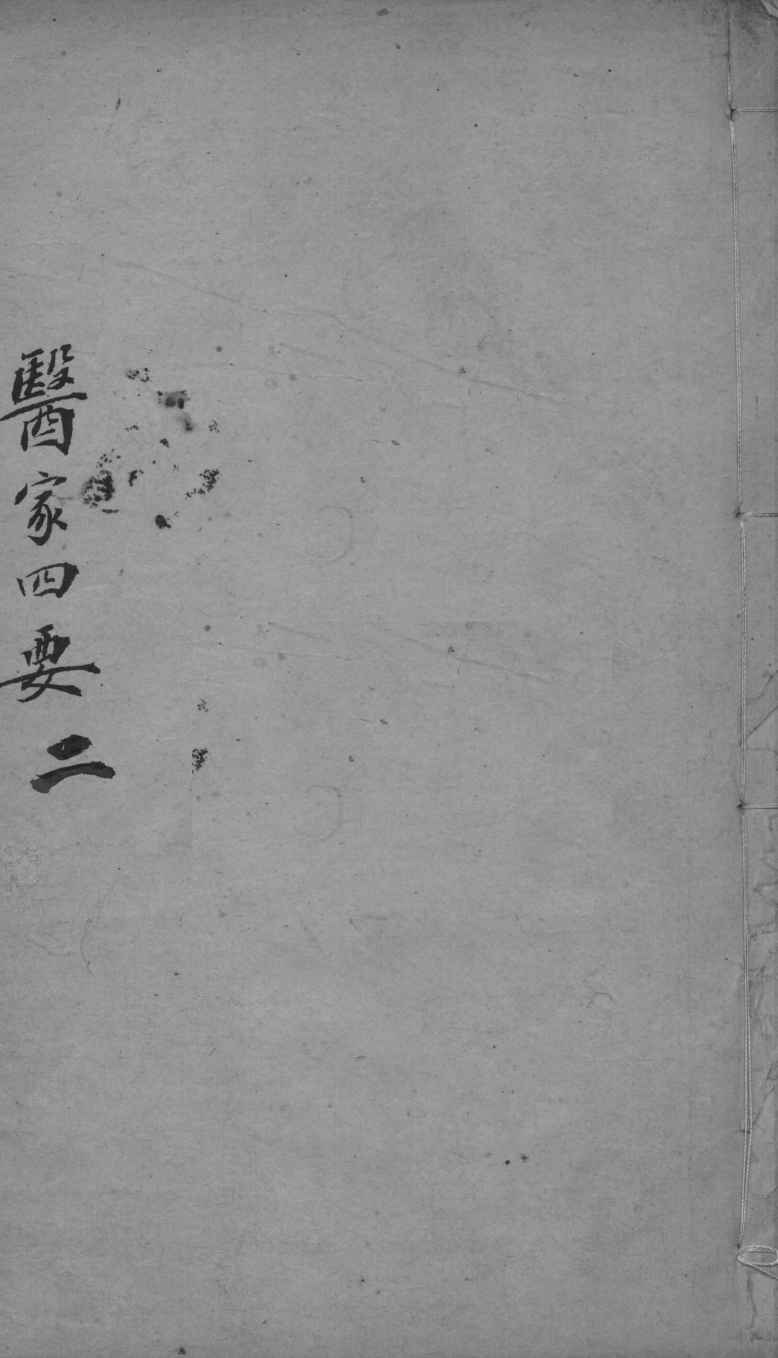 醫家四要 二